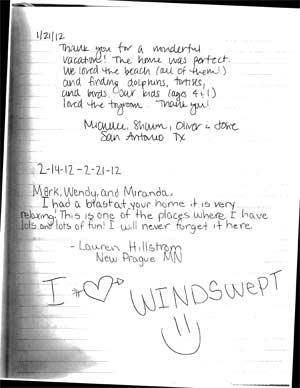 1/21/12
Thank you for a wonderful
vacation! The home was perfect.
We loved the beach (all of them!)
and finding dolphins, tortises,
and birds. Our kids (ages 4+1)
loved the toyroom. Thank you!
Michelle, Shawn, Oliver &
San Antonio TX
2-14-12 - 2-21-12
Mark, Wendy, and Miranda,
I had a blast at your home it is very
relaxing! This is one of the places where I have
lots and lots of fun! I will never forget it here.
- Lauren Hillstrom
New Prague MN
I WINDSWEPT